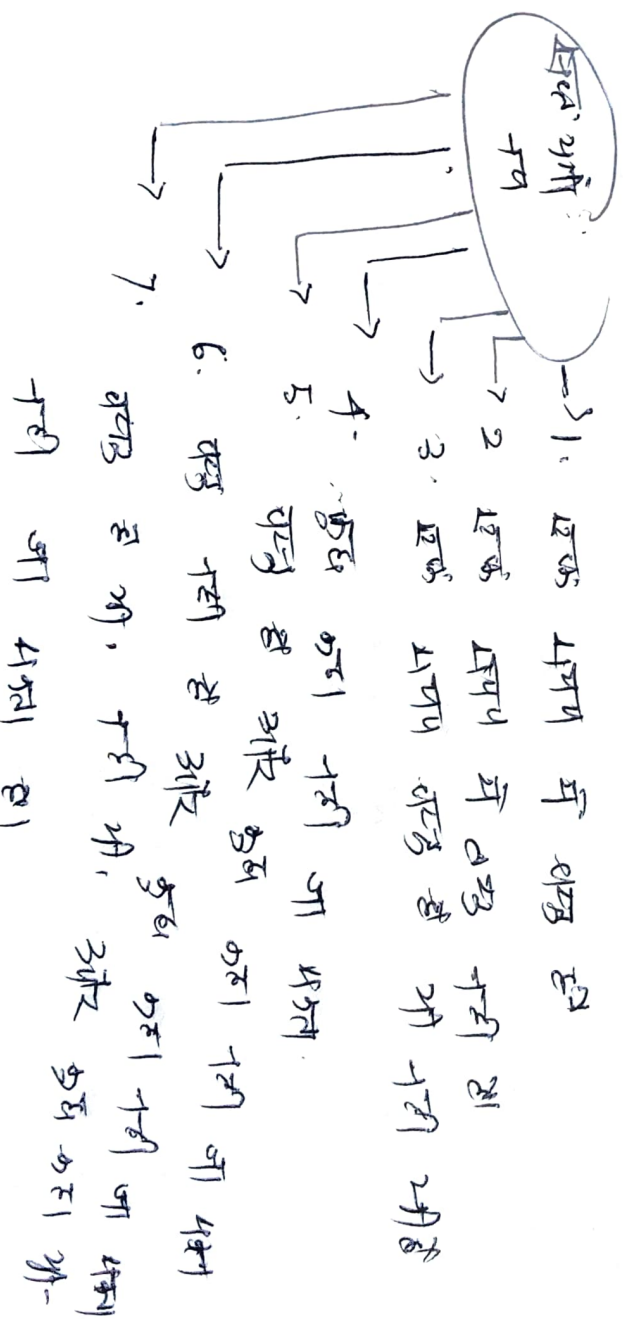 सप्तभंगी
नय
1. एक समय में वस्तु है
2 एक समय में वस्तु नहीं है
3. एक समय वस्तु है भी नहीं भी है
4. कुछ कहा नहीं जा सकता.
5. वस्तु है और कुछ कहा नहीं जा सकता
6. वस्तु नहीं है और कुछ कहा नहीं जा सकता
7. वस्तु है भी. नहीं भी. और कुछ कहा भी-
नहीं जा सकता है।